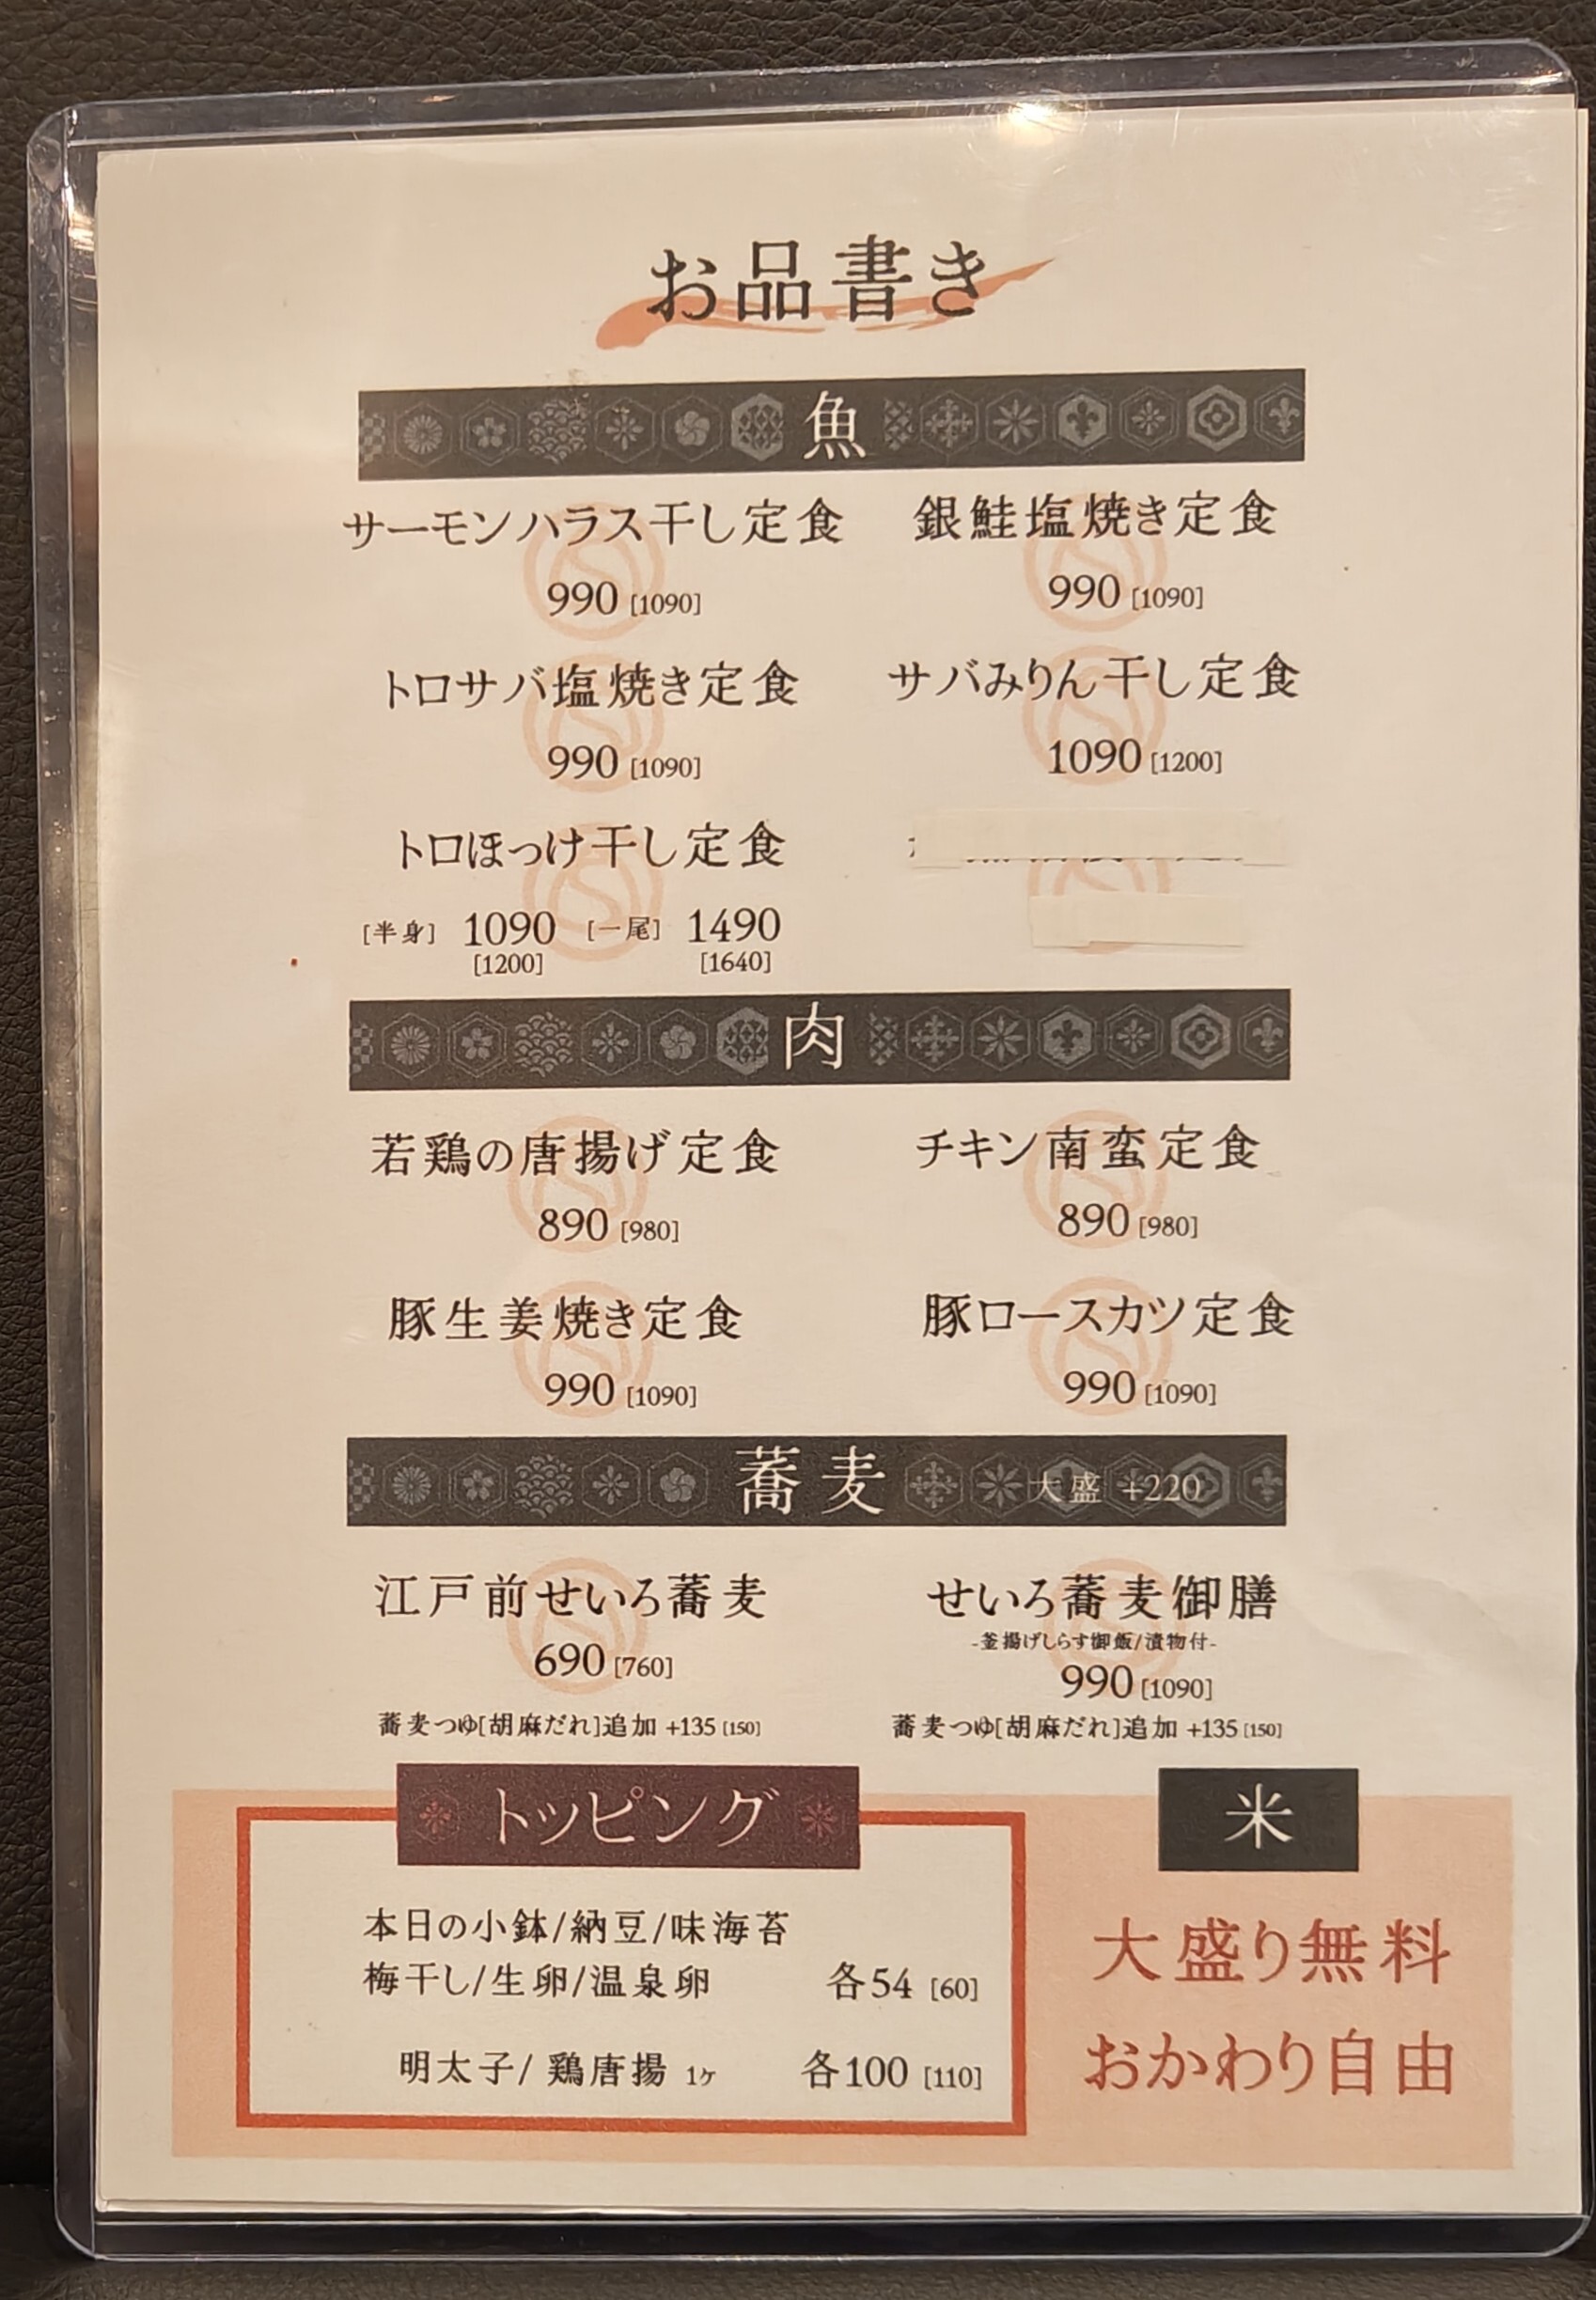 お品書き
魚
サーモンハラス干し定食
990 [1090]
銀鮭塩焼き定食
990 [1090]
トロサバ塩焼き定食
990 [1090]
サバみりん干し定食
1090 [1200]
トロほっけ干し定食
[半身] 1090 [一尾] 1490
[1200] [1640]
肉
若鶏の唐揚げ定食
890 [980]
チキン南蛮定食
890 [980]
豚生姜焼き定食
990 [1090]
豚ロースカツ定食
990 [1090]
蕎麦 大盛 +220
江戸前せいろ蕎麦
690 [760]
蕎麦つゆ[胡麻だれ]追加 +135 [150]
せいろ蕎麦御膳
-釜揚げしらす御飯/漬物付-
990 [1090]
蕎麦つゆ[胡麻だれ]追加 +135 [150]
トッピング
本日の小鉢/納豆/味海苔
梅干し/生卵/温泉卵 各54 [60]
明太子/ 鶏唐揚 1ヶ 各100 [110]
米
大盛り無料
おかわり自由